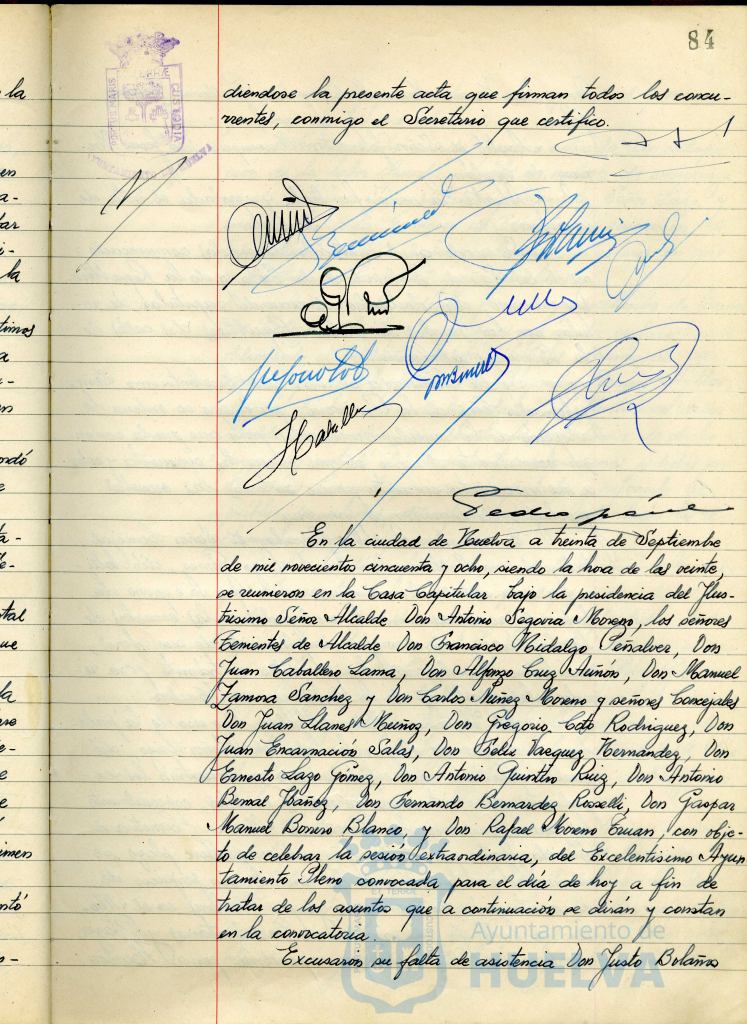 84
diendose la presente acta que firman todos los concu-
rrentes, conmigo el Secretario que certifico.
PORTUS MARIS
CUSTODIA
HCaballe
Pedro
En la ciudad de Huelva a treinta de Septiembre
de mil novecientos cincuenta y ocho, siendo la hora de las veinte,
se reunieron en la Casa Capitular bajo la presidencia del Ilus-
trisimo Señor Alcalde Don Antonio Segovia Moreno, los señores
Tenientes de Alcalde Don Francisco Hidalgo Peñalver, Don
Juan Caballero Lama, Don Alfonzo Cruz Auñón, Don Manuel
Zamora Sanchez y Don Carlos Núñez Moreno y señores Concejales
Don Juan Llanes Muñoz, Don Gregorio Coto Rodriguez, Don
Juan Encarnación Salas, Don Felix Vazquez Hernández, Don
Ernesto Lazo Gómez, Don Antonio Quintero Ruiz, Don Antonio
Bernal Ibáñez, Don Fernando Bernardez Rosselli, Don Gaspar
Manuel Bonero Blanco, y Don Rafael Moreno Eruan, con obje-
to de celebrar la sesión extraordinaria, del Excelentisimo Ayun
tamiento Pleno convocada para el día de hoy a fin de
tratar de los asuntos que a continuación se dirán y constan
en la convocatoria.
Excusarón su falta de asistencia Don Justo Bolaños
Ayuntamiento de
HUELVA